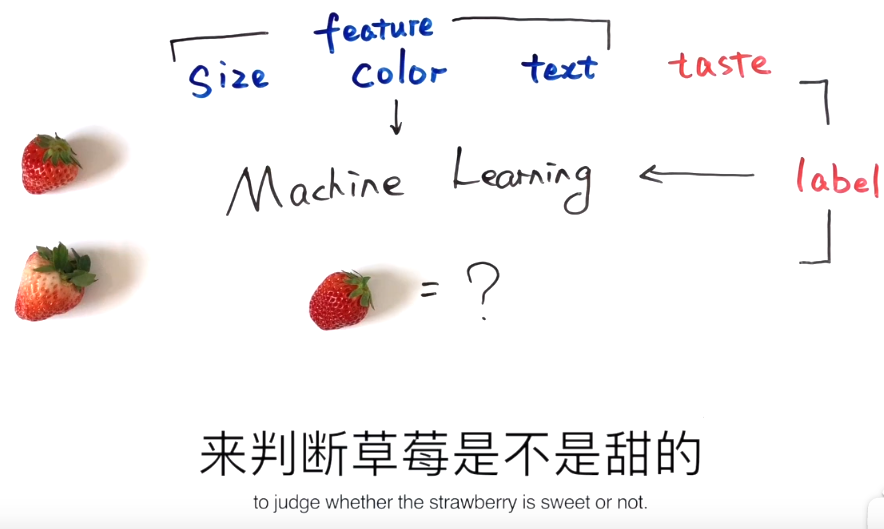 feature
Size color text taste
Machine Learning ← label
= ?
来判断草莓是不是甜的
to judge whether the strawberry is sweet or not.